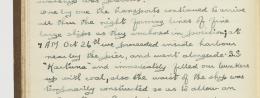 One by one the transports continued to arrive
all thro the night joining lines of fine
large ships as they anchored in position; at
7 AM Oct 26th we proceeded inside harbour
near by the pier, and went alongside SS
"Karlina" and immediately filled our bunkers
up with coal, also the waist of the ship was
temporarily constructed so as to allow an